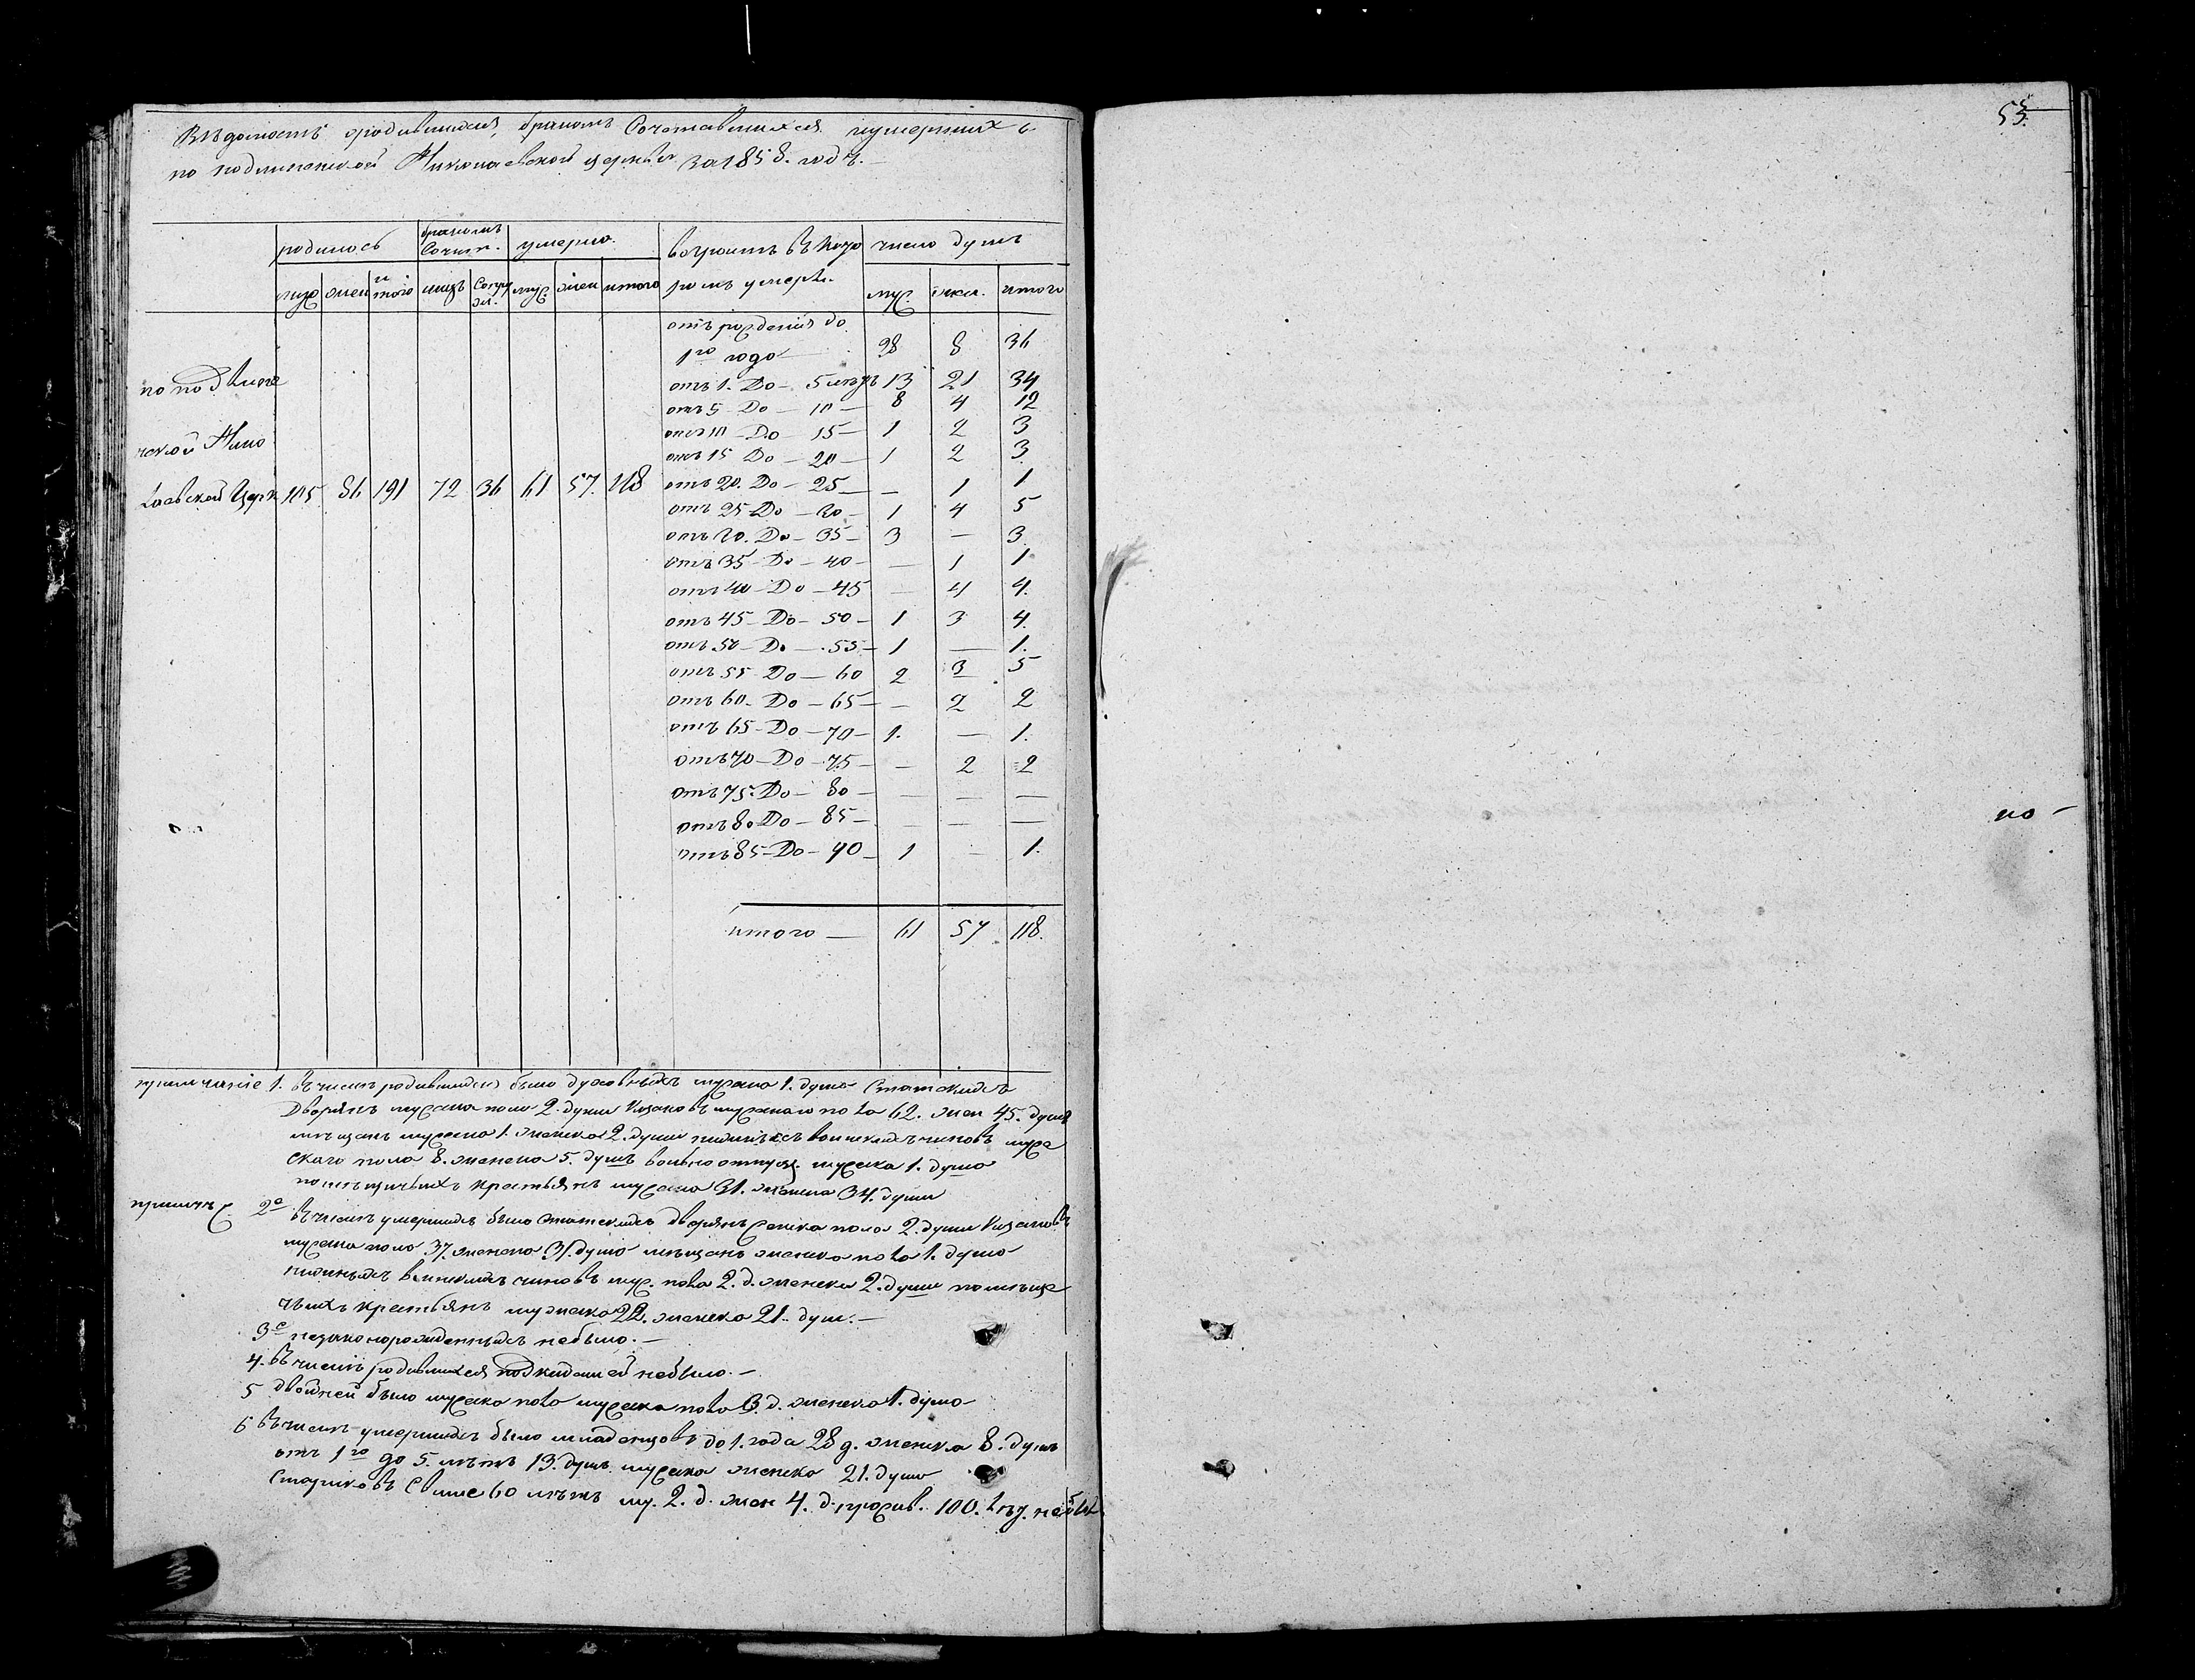 Вѣдомость о родившихся, бракомъ Сочетавшихся и умершихъ
по Николаевской церкви за 1858. годъ. —
родилось | бракомъ Сочит. | умерло. | возрастъ въ кото | число душъ
муж | жен | итого | лицъ | Супру | муж | жен | итого | ромъ умерли. | муж. | жен. | итого
отъ рожденія до
1го года — 28 8 36
отъ 1. До — 5 лѣтъ 13 21 34
отъ 5 До — 10 — 8 4 12
отъ 10 — До — 15 — 1 2 3
отъ 15 До — 20 — 1 2 3
по подвине
ческой Нико
лаевской Церк 105. 86 191 72 36 61 57. 118
отъ 20. До — 25 — — 1 1
отъ 25 До — 30 — 1 4 5
отъ 30. До — 35 — 3 — 3
отъ 35 — До — 40 — — 1 1
отъ 40 — До — 45 — 4 4.
отъ 45 — До — 50 — 1 3 4.
отъ 50 — До — 55 — 1 — 1.
отъ 55 До — 60 2 3 5
отъ 60. До — 65 — — 2 2
отъ 65 — До — 70 — 1. — 1.
отъ 70 — До — 75 — — 2 2
отъ 75. До — 80 — — — —
отъ 80 До — 85 — — — —
отъ 85 — До — 90 — 1 — 1.
итого — 61 57 118.
примѣчаніе 1. въ числѣ родившихся было духовныхъ мужска 1. душа Статскихъ
Дворянъ мужска пола 2. души Козаковъ мужскаго пола 62. жен 45. душъ
мѣщанъ мужска 1. женска 2. души нижнихъ воинскихъ чиновъ муже
скаго пола 8. женска 5. душъ вольноотпущ. мужска 1. душа
помѣщичьихъ крестьянъ мужска 31. женска 34. души
примѣч 2е въ числѣ умершихъ было Статскихъ дворянъ женска пола 2. души Козаковъ
мужска пола 37. женска 31. душа мѣщанъ женска пола 1. душа
нижнихъ воинскихъ чиновъ муж. пола 2. д. женска 2. души помѣщи
чьихъ крестьянъ мужска 22. женска 21. душ. —
3е незаконорожденныхъ небыло. —
4. въ числѣ родившихся подкидышей небыло. —
5 двойней было мужска пола мужска пола 3. д. женска 1. душа
6 въ числѣ умершихъ было младенцовъ до 1. года 28 д. женска 8. душъ
отъ 1го до 5. лѣтъ 13. душъ мужска женска 21. душа
Стариковъ Свыше 60 лѣтъ му. 2. д. жен 4. д. 100. небыло
53.
по —